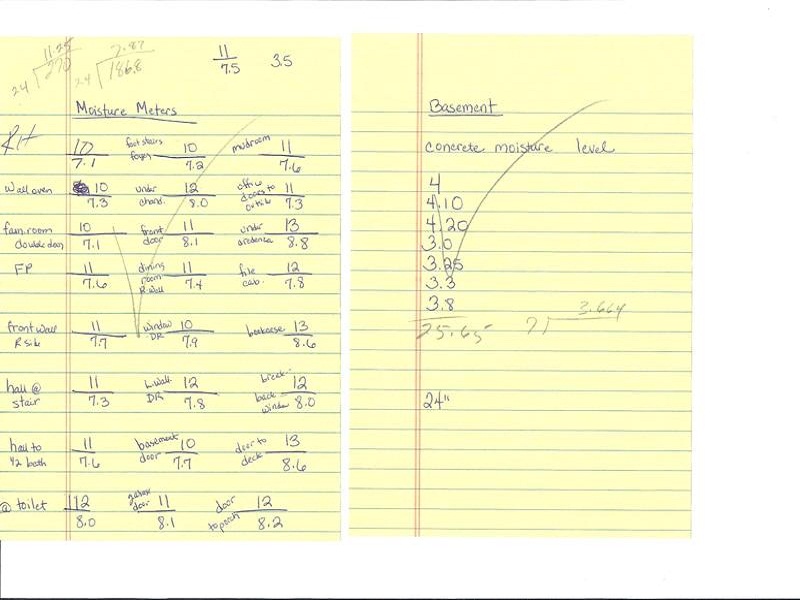 11.25 7.87 11
24 270 24 186.8 7.5 3.5
Moisture Meters
RH 10 foot stairs 10 mudroom 11
7.1 foyer 7.2 7.6
Wall oven 10 under 12 office 11
7.3 chand. 8.0 doors to 7.3
fam. room 10 front 11 under 13
double door 7.1 door 8.1 credenza 8.8
FP 11 dining 11 file 12
7.6 room 7.4 cab. 7.8
R. wall
front wall 11 window 10 bookcase 13
R side 7.7 DR 7.9 8.6
hall @ 11 L. wall 12 break. 12
stair 7.3 DR 7.8 back 8.0
window
hall to 11 basement 10 door to 13
1/2 bath 7.6 door 7.7 deck 8.6
@ toilet 112 garage 11 door 12
8.0 door 8.1 to porch 8.2
Basement
concrete moisture level
4
4.10
4.20
3.0
3.25
3.3
3.8
25.65 7 3.664
24"